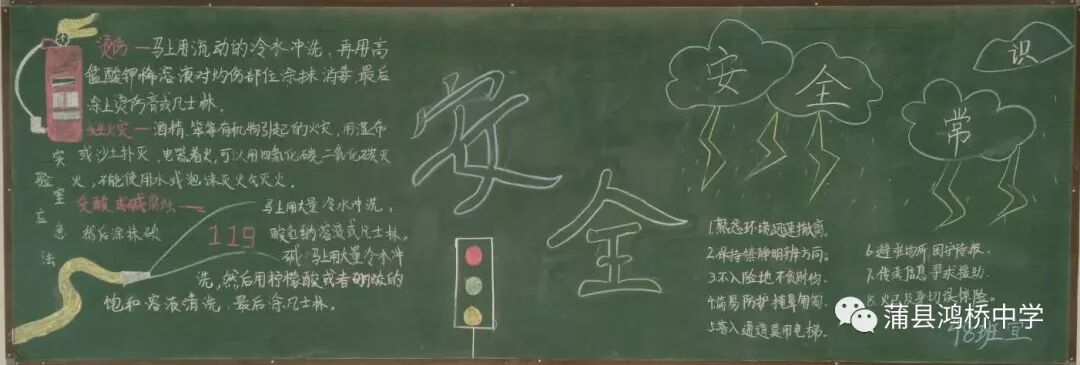 烫伤—马上用流动的冷水冲洗，再用高
锰酸钾稀溶液对灼伤部位涂抹消毒，最后
涂上烫伤膏或凡士林。
火灾—酒精，苯等有机物引起的火灾，用湿布
或沙土扑灭，电器着火，可以用四氯化碳、二氧化碳灭
火，不能使用水或泡沫灭火器灭火。
受酸或碱腐蚀—马上用大量冷水冲洗，
然后涂抹碳酸氢钠溶液或凡士林。
碱：马上用大量冷水冲
洗，然后用柠檬酸或者硼酸的
饱和溶液清洗，最后涂凡士林。
实验室应急法
119
安全
安全常识
1.熟悉环境迅速撤离。
2.保持镇静明辨方向。
3.不入险地不贪财物。
4.简易防护掩鼻匍匐。
5.善入通道莫用电梯。
6.避难场所固守待援。
7.传送信息寻求援助。
8.火已及身切误惊险。
98班宣
蒲县鸿桥中学